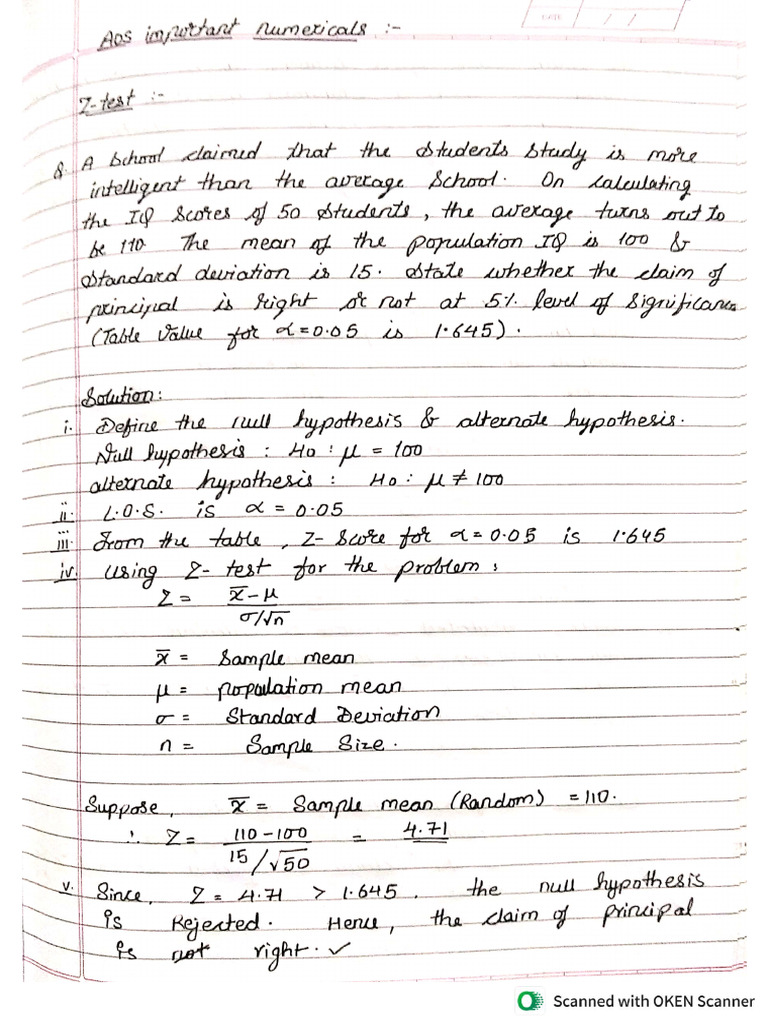 AOS important numericals :-
DATE / /
Z-test :-
Q. A School claimed that the students study is more
intelligent than the average School. On calculating
the IQ Scores of 50 students, the average turns out to
be 110. The mean of the population IQ is 100 &
standard deviation is 15. State whether the claim of
principal is right or not at 5% level of significance
(Table Value for α=0.05 is 1.645).
Solution:
i. Define the null hypothesis & alternate hypothesis.
Null hypothesis : Ho : μ = 100
alternate hypothesis : Ho : μ ≠ 100
ii. L.O.S. is α = 0.05
iii. From the table, Z-score for α=0.05 is 1.645
iv. Using Z-test for the problem :
Z = x̄ - μ
σ/√n
x̄ = Sample mean
μ = population mean
σ = Standard Deviation
n = Sample Size.
Suppose, x̄ = Sample mean (Random) = 110.
∴ Z = 110-100 = 4.71
15/√50
v. Since, Z = 4.71 > 1.645, the null hypothesis
is Rejected. Hence, the claim of principal
is not right. ✓
Scanned with OKEN Scanner